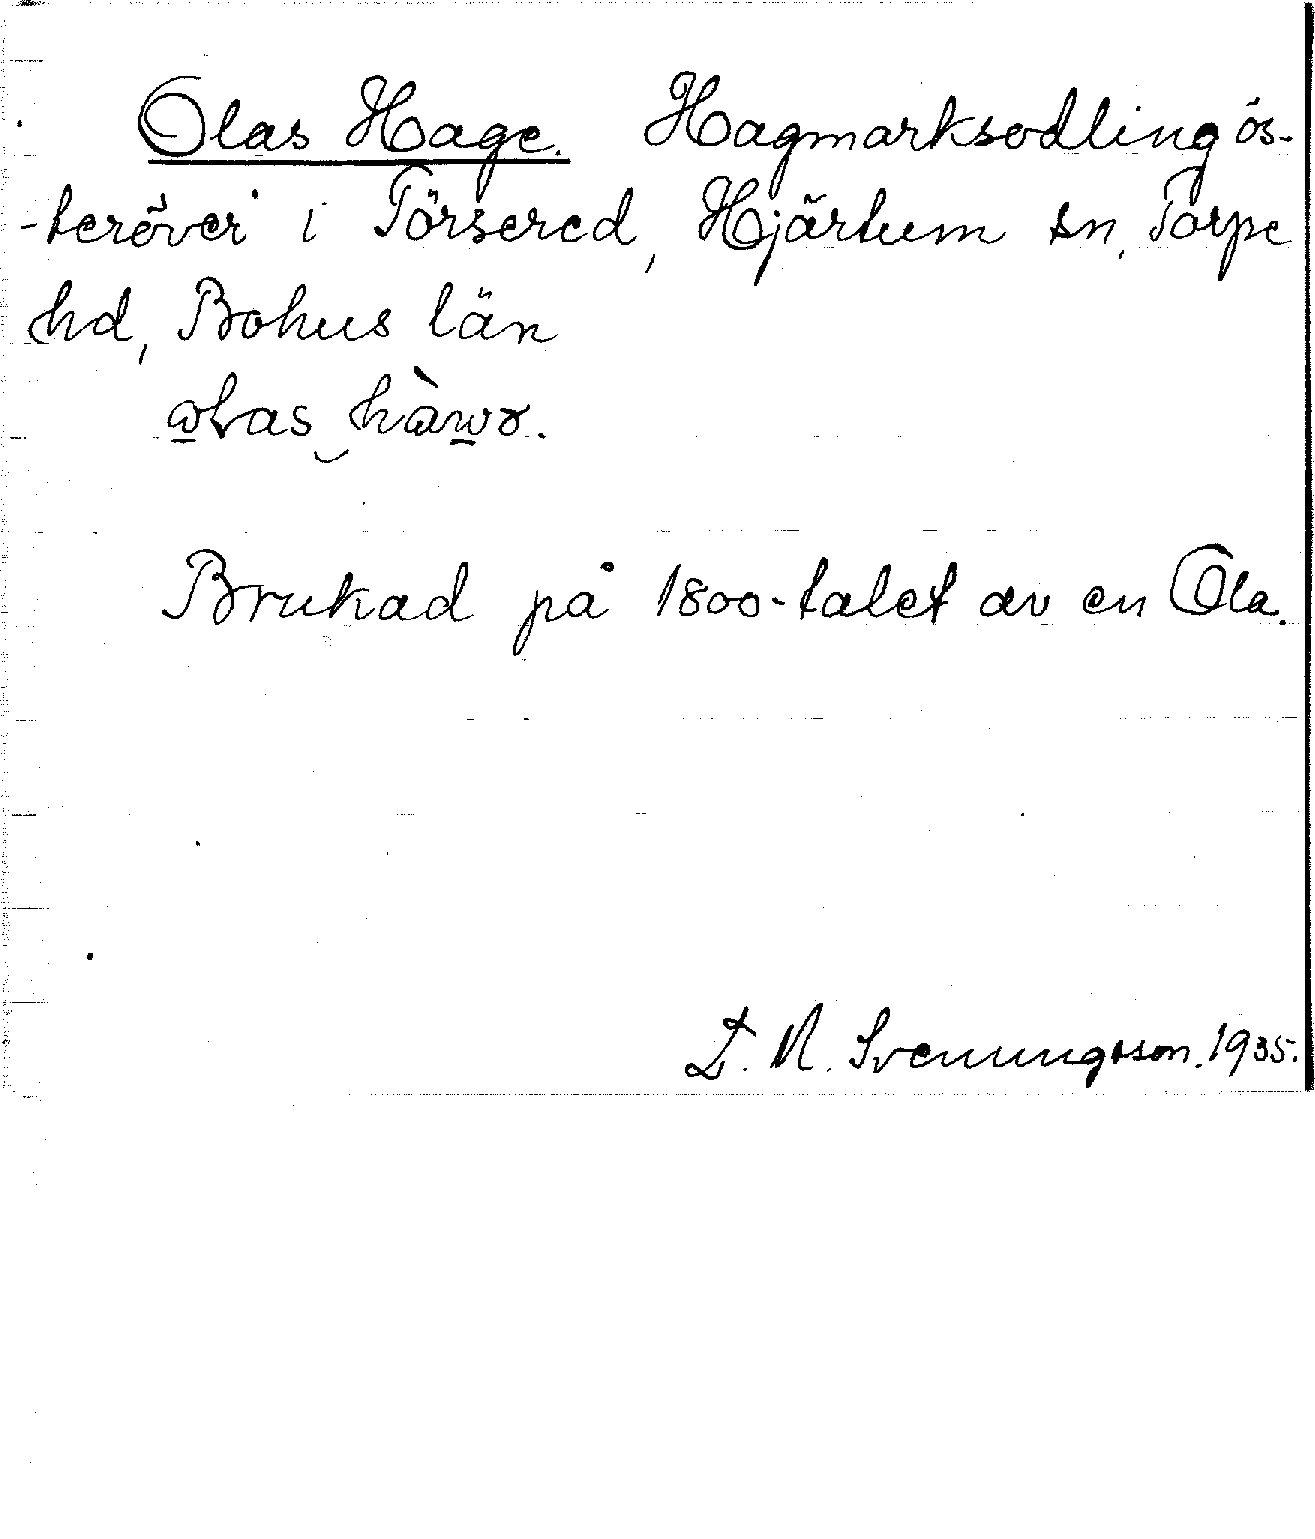 Olas Hage. Hagmarksodling ös-
-teröver i Törsered, Hjärtum sn, Torpe
hd, Bohus län
Brukad på 1800-talet av en Ola.
D. N. Svenungsson. 1935.